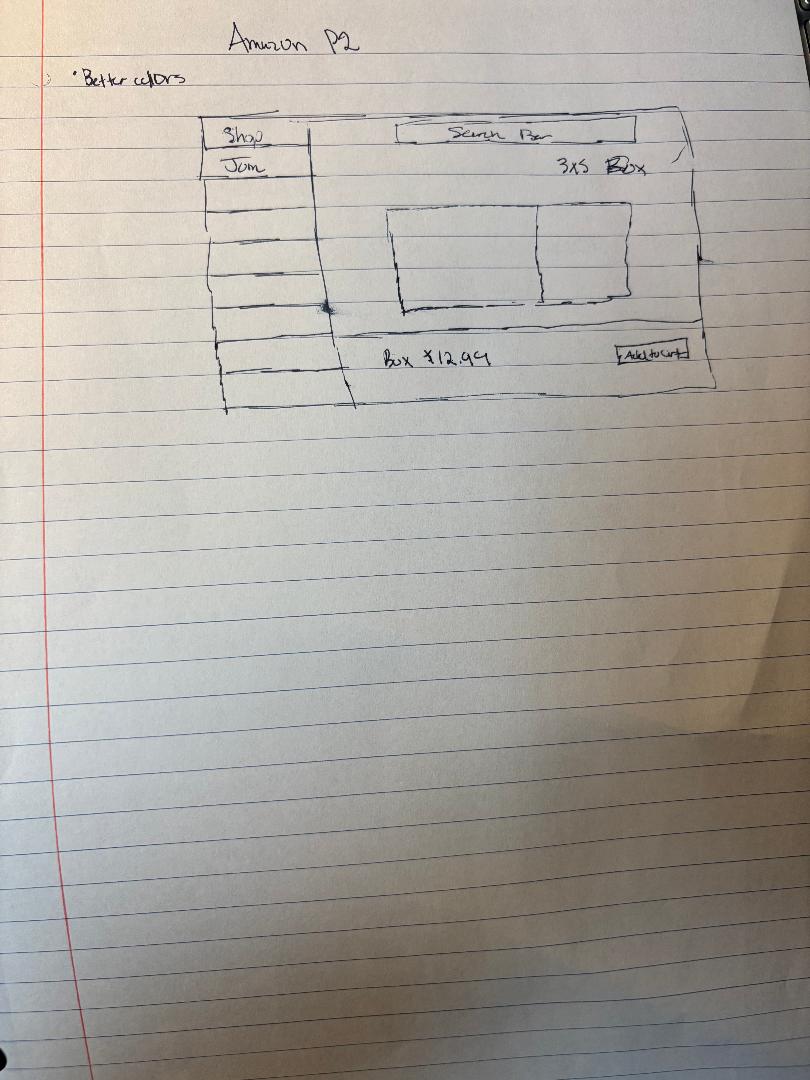 Amazon P2
• Better colors
Shop
Search Bar
Join
3x5 Box
Box $12.99
Add to cart